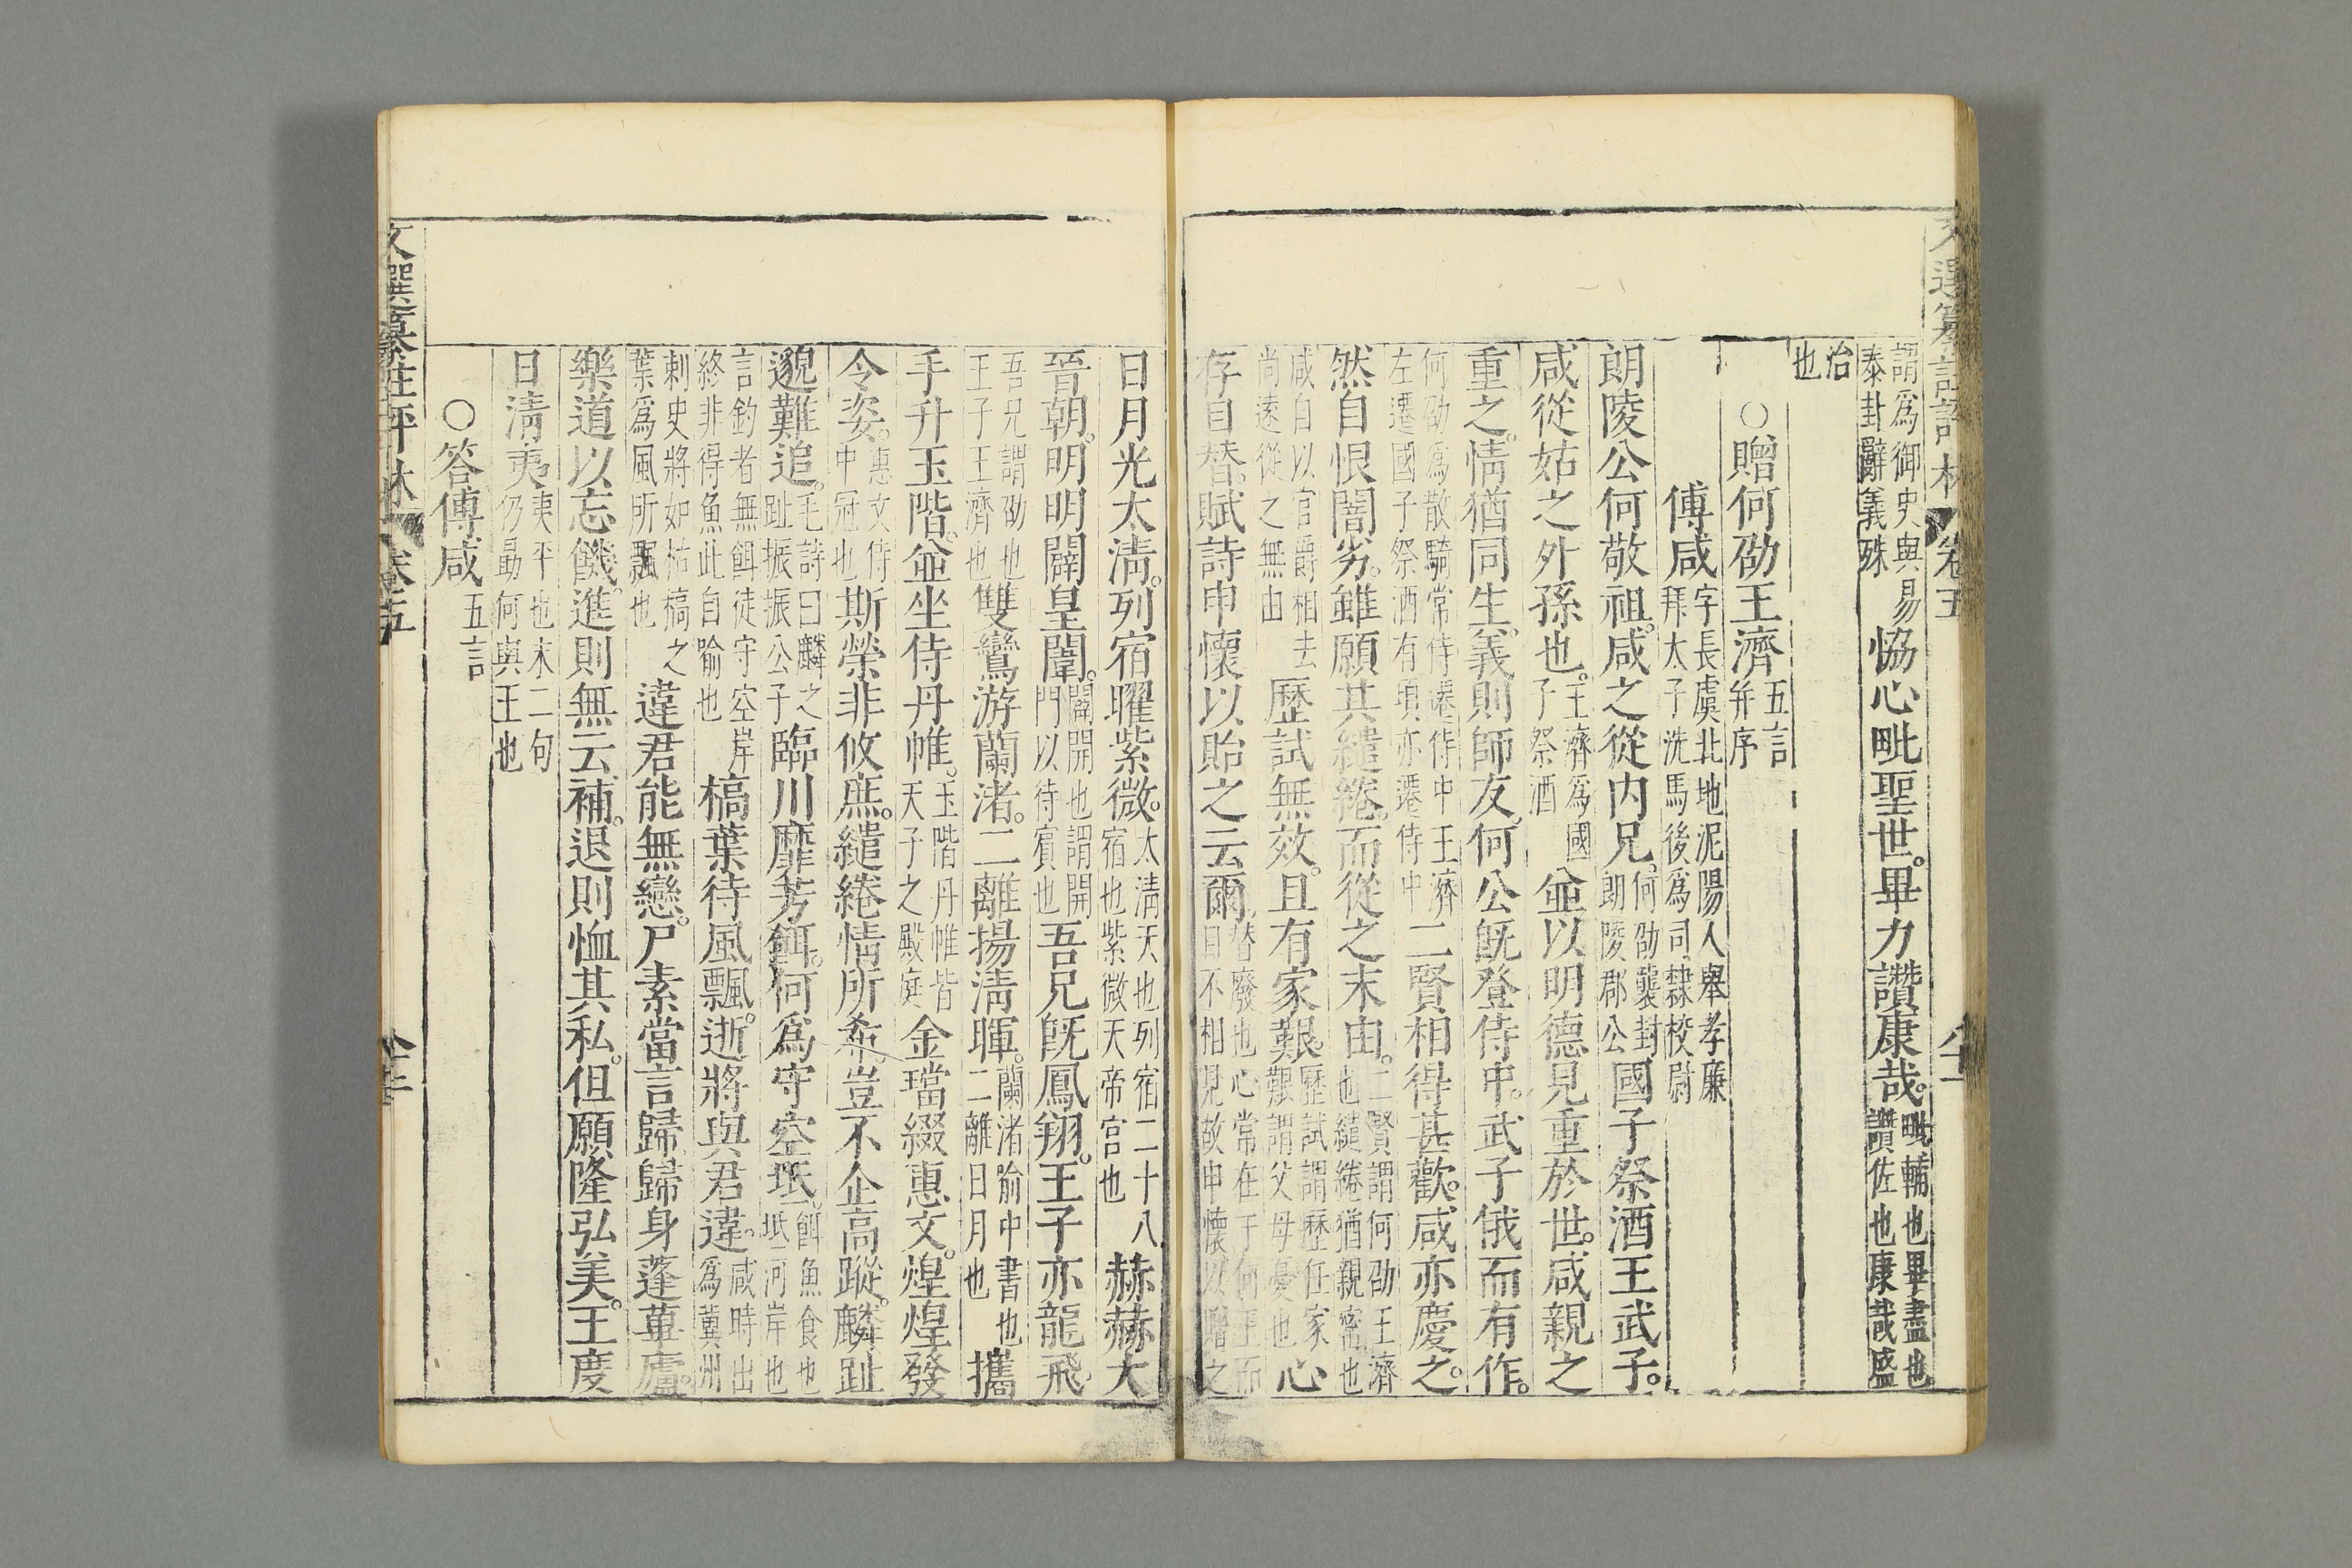 文選纂註評林 卷五 八十一
謂爲御史與易泰封辭義殊恊心毗聖世。畢力讚康哉。毗輔也畢盡也讚佐也康哉盛
治也
○贈何劭王濟五言并序
傅咸字長虞北地泥陽人舉孝廉拜太子洗馬後爲司隸校尉
朗陵公何敬祖。咸之從内兄。何劭襲封朗陵郡公國子祭酒王武子。
咸從姑之外孫也。王濟爲國子祭酒並以明德見重於世。咸親之
重之。情猶同生。義則師友。何公旣登侍中。武子俄而有作。
何劭爲散騎常侍遷侍中王濟左遷國子祭酒有頃亦遷侍中二賢相得甚歡。咸亦慶之。
然自恨闇劣。雖願其繾綣。而從之末由。二賢謂何劭王濟也繾綣猶親密也
咸自以官爵相去尚遠從之無由歷試無效。且有家艱。歷試謂歷任家艱謂父母憂也心
存目替。賦詩申懷以貽之云爾。替廢也心常在于何王而目不相見故申懷以贈之
日月光太淸。列宿曜紫微。太淸天也列宿二十八宿也紫微天帝宮也赫赫大
晉朝。明明闢皇闈。闢開也謂開門以待賓也吾兄旣鳳翔。王子亦龍飛。
吾兄謂劭也王子王濟也雙鸞游蘭渚。二離揚淸暉。蘭渚喻中書也二離日月也攜
手升玉階。並坐侍丹帷。玉階丹帷皆天子之殿庭金璫綴惠文。煌煌發
令姿。惠文侍中冠也斯榮非攸庶。繾綣情所希。豈不企高蹤。麟趾
邈難追。毛詩曰麟之趾振振公子臨川靡芳餌。何爲守空坻。餌魚食也坻河岸也
言釣者無餌徒守空岸終非得魚此自喻也槁葉待風飄。逝將與君違。咸時出爲冀州
刺史將如枯槁之葉爲風所飄也違君能無戀。尸素當言歸。歸身蓬蓽廬。
樂道以忘饑。進則無云補。退則恤其私。但願隆弘美。王度
日淸夷夷平也末二句仍勗何與王也
○答傅咸五言
文選纂註評林 卷五